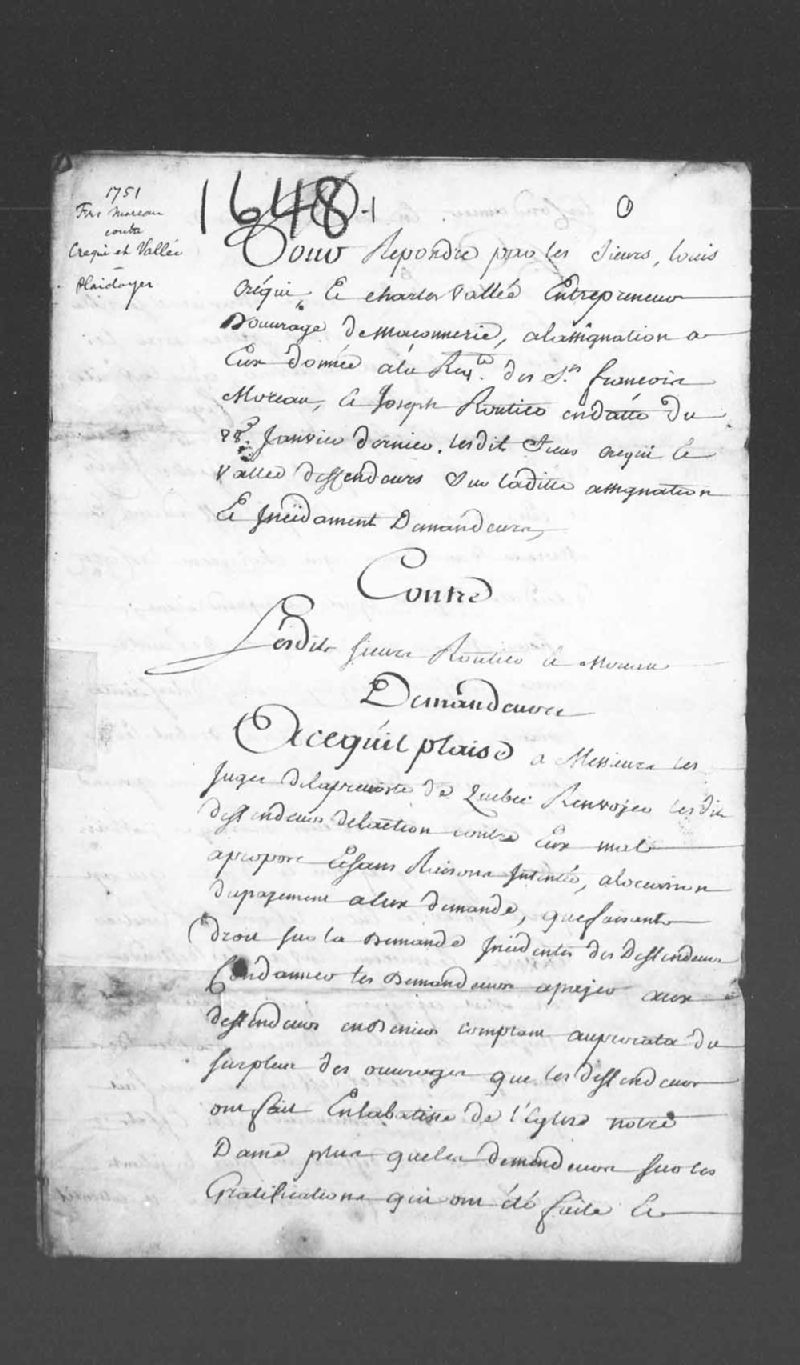 1751
Frs Moreau
contre
Crequi et Vallée
Plaidoyer
1648-1
Pour Repondre par les Sieurs, Louis
Créqui Et charles Vallée Entrepreneur
Douvrage de maconnerie, alassignation a
Eux donnée ala Reqte. des Srs. françois
Moreau, Et Joseph Routier endatte du
Janvier dernier. lesdit Sieur crequi Et
Vallée deffendeurs Sur laditte assignation
Et Jncidament Demandeurs,
Contre
Lesdits sieurs Routier Et Moreau
Demandeurs
Acequil plaise a Messieurs les
Juges delaprevosté de Quebec Renvoyer lesdit
deffendeurs delaction contre Eux mal
apropos Et sans Raisons Jntentée, alocasion
dupayement aEux demandé, quefaisante
droit sur la Demande Jncidentes des Deffendeurs
Condamner les Demandeurs apayer aux
deffendeurs endeniers comptant auprorata du
surplus des ouvrages que les deffendeurs
ont fait Enlabatisse de l'Eglise notre
Dame plus queles demandeurs sur les
Gratifications qui ont été faite Et